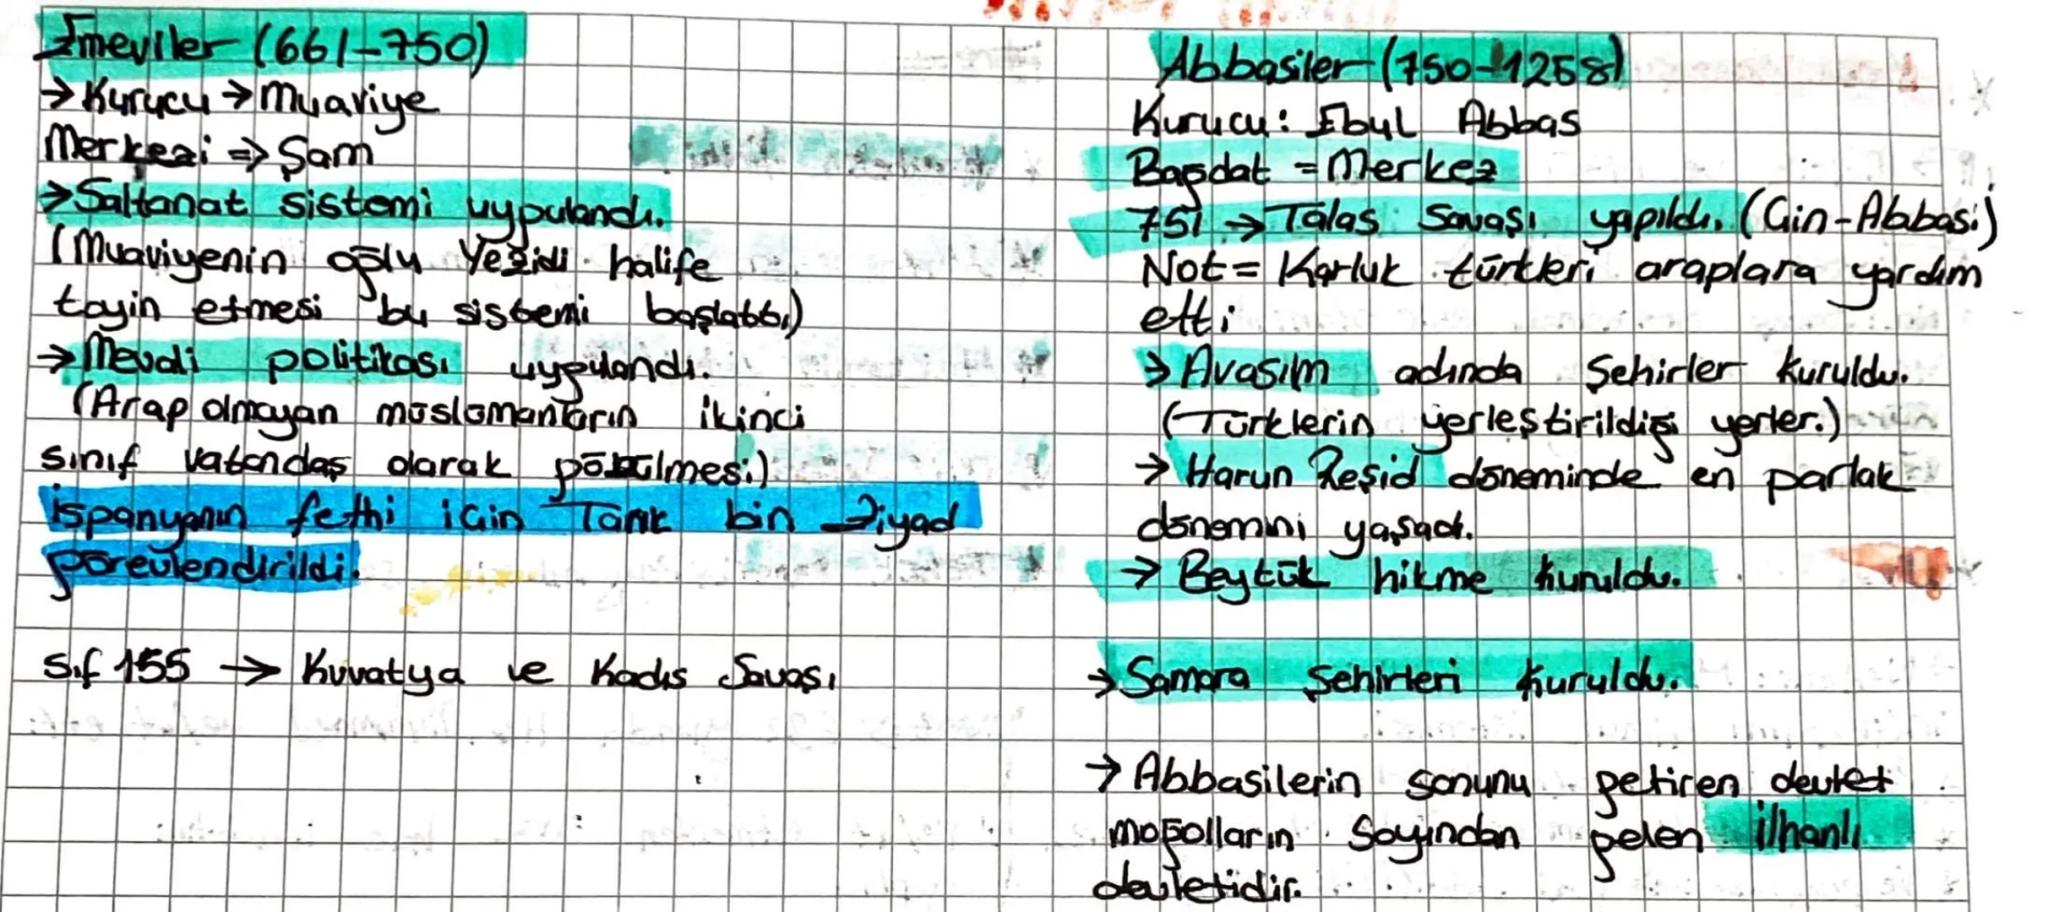 Emeviler (661-750)
→ Kurucu → Muaviye
Merkezi ⇒ Şam
→ Saltanat sistemi uygulandı.
(Muaviyenin oğlu Yezidi halife
tayin etmesi bu sistemi başlattı)
→ Mevali politikası uygulandı.
(Arap olmayan müslümanların ikinci
sınıf vatandaş olarak görülmesi)
İspanyanın fethi için Tarık bin Ziyad
görevlendirildi.
Sıf 155 → Kuvatya ve Kadis Savaşı
Abbasiler (750-1258)
Kurucu: Ebul Abbas
Bağdat = Merkez
751 → Talas Savaşı yapıldı. (Çin-Abbasi)
Not = Karluk türkleri araplara yardım
etti
→ Avasım adında Şehirler kuruldu.
(Türklerin yerleştirildiği yerler.)
→ Harun Reşid döneminde en parlak
dönemini yaşadı.
→ Beytük hikme kuruldu.
→ Samara Şehirleri Kuruldu.
→ Abbasilerin sonunu getiren devlet
moğolların Soyından gelen İlhanlı
devletidir.